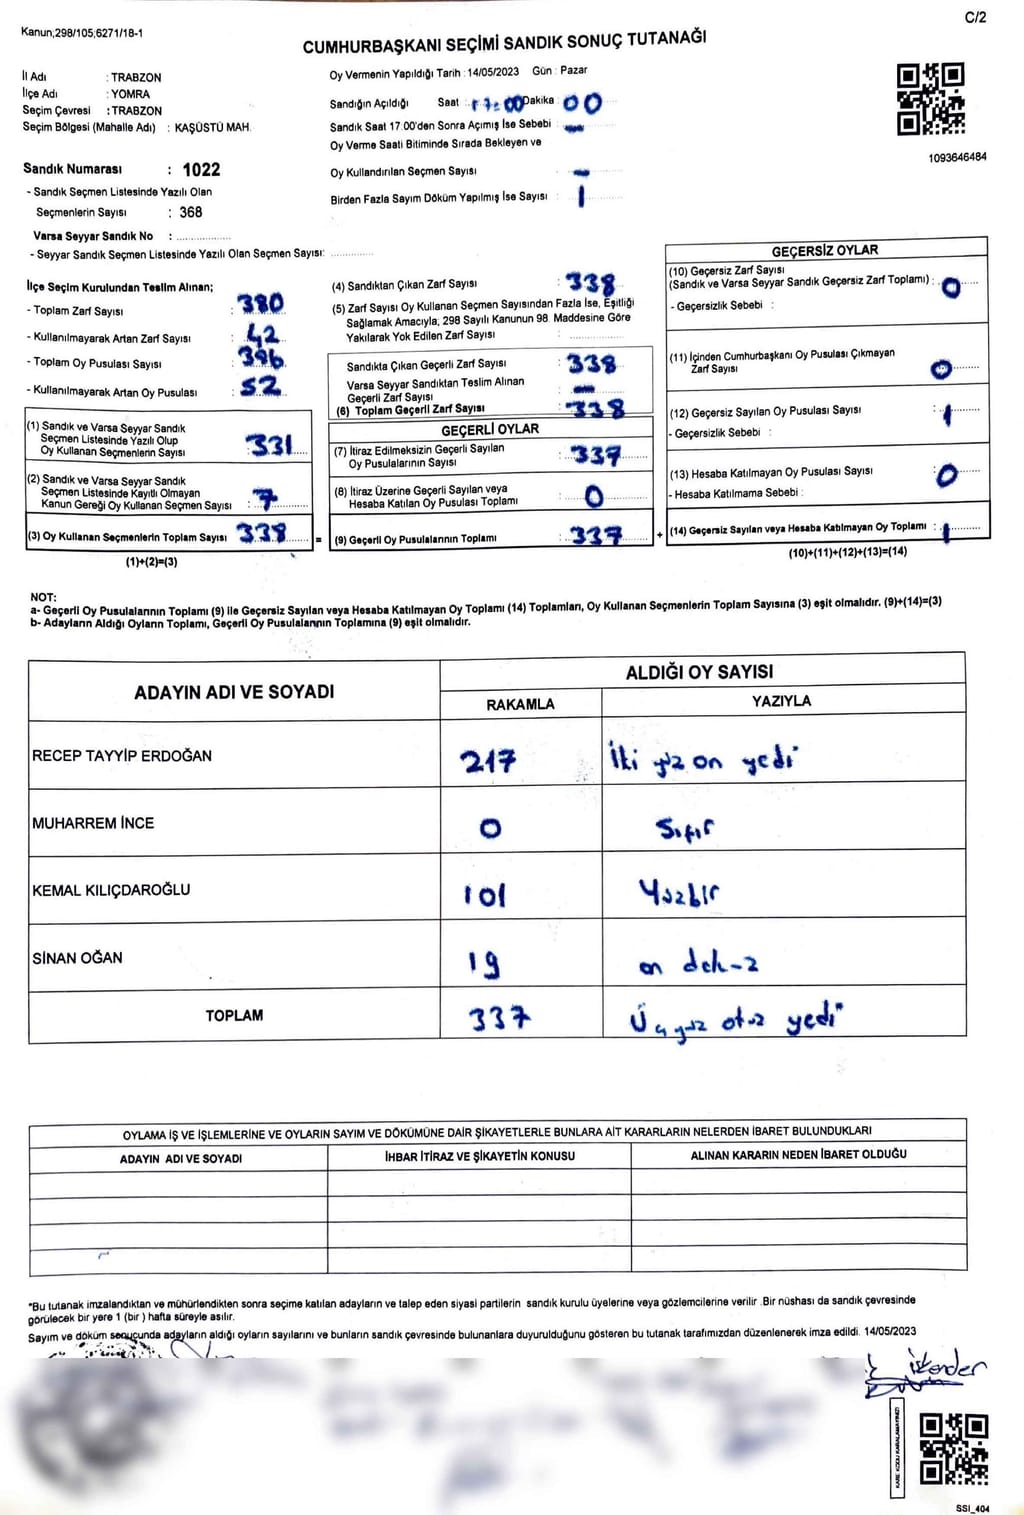 C/2
Kanun;298/105;6271/18-1
CUMHURBAŞKANI SEÇİMİ SANDIK SONUÇ TUTANAĞI
İl Adı : TRABZON
İlçe Adı : YOMRA
Seçim Çevresi : TRABZON
Seçim Bölgesi (Mahalle Adı) : KAŞÜSTÜ MAH.
Oy Vermenin Yapıldığı Tarih : 14/05/2023 Gün : Pazar
Sandığın Açıldığı Saat : 17:00 Dakika : 00
Sandık Saat 17:00'den Sonra Açımış İse Sebebi : -
Oy Verme Saati Bitiminde Sırada Bekleyen ve
Oy Kullandırılan Seçmen Sayısı -
Birden Fazla Sayım Döküm Yapılmış İse Sayısı : 1
1093646484
Sandık Numarası : 1022
- Sandık Seçmen Listesinde Yazılı Olan
Seçmenlerin Sayısı : 368
Varsa Seyyar Sandık No : ..................
- Seyyar Sandık Seçmen Listesinde Yazılı Olan Seçmen Sayısı: ..............
İlçe Seçim Kurulundan Teslim Alınan;
- Toplam Zarf Sayısı : 380
- Kullanılmayarak Artan Zarf Sayısı : 42
- Toplam Oy Pusulası Sayısı : 396
- Kullanılmayarak Artan Oy Pusulası : 52
(1) Sandık ve Varsa Seyyar Sandık
Seçmen Listesinde Yazılı Olup
Oy Kullanan Seçmenlerin Sayısı : 331
(2) Sandık ve Varsa Seyyar Sandık
Seçmen Listesinde Kayıtlı Olmayan
Kanun Gereği Oy Kullanan Seçmen Sayısı : 7
(3) Oy Kullanan Seçmenlerin Toplam Sayısı : 338 =
(1)+(2)=(3)
(4) Sandıktan Çıkan Zarf Sayısı : 338
(5) Zarf Sayısı Oy Kullanan Seçmen Sayısından Fazla İse, Eşitliği
Sağlamak Amacıyla; 298 Sayılı Kanunun 98. Maddesine Göre
Yakılarak Yok Edilen Zarf Sayısı : ..............
Sandıkta Çıkan Geçerli Zarf Sayısı : 338
Varsa Seyyar Sandıktan Teslim Alınan
Geçerli Zarf Sayısı : -
(6) Toplam Geçerli Zarf Sayısı : 338
GEÇERLİ OYLAR
(7) İtiraz Edilmeksizin Geçerli Sayılan
Oy Pusulalarının Sayısı : 337
(8) İtiraz Üzerine Geçerli Sayılan veya
Hesaba Katılan Oy Pusulası Toplamı : 0
(9) Geçerli Oy Pusulalarının Toplamı : 337 +
GEÇERSİZ OYLAR
(10) Geçersiz Zarf Sayısı
(Sandık ve Varsa Seyyar Sandık Geçersiz Zarf Toplamı) : 0
- Geçersizlik Sebebi :
(11) İçinden Cumhurbaşkanı Oy Pusulası Çıkmayan
Zarf Sayısı : 0
(12) Geçersiz Sayılan Oy Pusulası Sayısı : 1
- Geçersizlik Sebebi :
(13) Hesaba Katılmayan Oy Pusulası Sayısı : 0
- Hesaba Katılmama Sebebi :
(14) Geçersiz Sayılan veya Hesaba Katılmayan Oy Toplamı : 1
(10)+(11)+(12)+(13)=(14)
NOT:
a- Geçerli Oy Pusulalarının Toplamı (9) ile Geçersiz Sayılan veya Hesaba Katılmayan Oy Toplamı (14) Toplamları, Oy Kullanan Seçmenlerin Toplam Sayısına (3) eşit olmalıdır. (9)+(14)=(3)
b- Adayların Aldığı Oyların Toplamı, Geçerli Oy Pusulalarının Toplamına (9) eşit olmalıdır.
ADAYIN ADI VE SOYADI
ALDIĞI OY SAYISI
RAKAMLA YAZIYLA
RECEP TAYYİP ERDOĞAN 217 İki yüz on yedi
MUHARREM İNCE 0 Sıfır
KEMAL KILIÇDAROĞLU 101 Yüzbir
SİNAN OĞAN 19 on dokuz
TOPLAM 337 Üçyüz otuz yedi
OYLAMA İŞ VE İŞLEMLERİNE VE OYLARIN SAYIM VE DÖKÜMÜNE DAİR ŞİKAYETLERLE BUNLARA AİT KARARLARIN NELERDEN İBARET BULUNDUKLARI
ADAYIN ADI VE SOYADI İHBAR İTİRAZ VE ŞİKAYETİN KONUSU ALINAN KARARIN NEDEN İBARET OLDUĞU
*Bu tutanak imzalandıktan ve mühürlendikten sonra seçime katılan adayların ve talep eden siyasi partilerin sandık kurulu üyelerine veya gözlemcilerine verilir .Bir nüshası da sandık çevresinde
görülecek bir yere 1 (bir ) hafta süreyle asılır.
Sayım ve döküm sonucunda adayların aldığı oyların sayılarını ve bunların sandık çevresinde bulunanlara duyurulduğunu gösteren bu tutanak tarafımızdan düzenlenerek imza edildi. 14/05/2023
İskender
KARE KODU KARALAMAYINIZ!
SSI_404